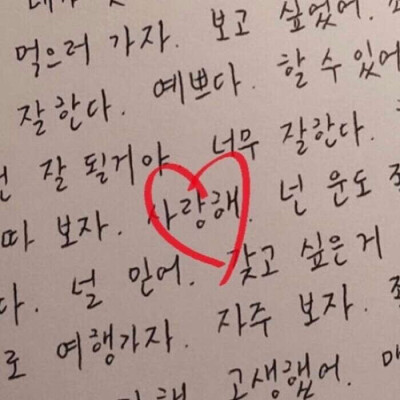 먹으러 가자. 보고 싶었어.
잘한다. 예쁘다. 할 수 있어
잘 될거야. 너무 잘한다.
보자. 사랑해. 넌 운도
다. 널 믿어. 갖고 싶은 거
로 여행가자. 자주 보자.
고생했어.